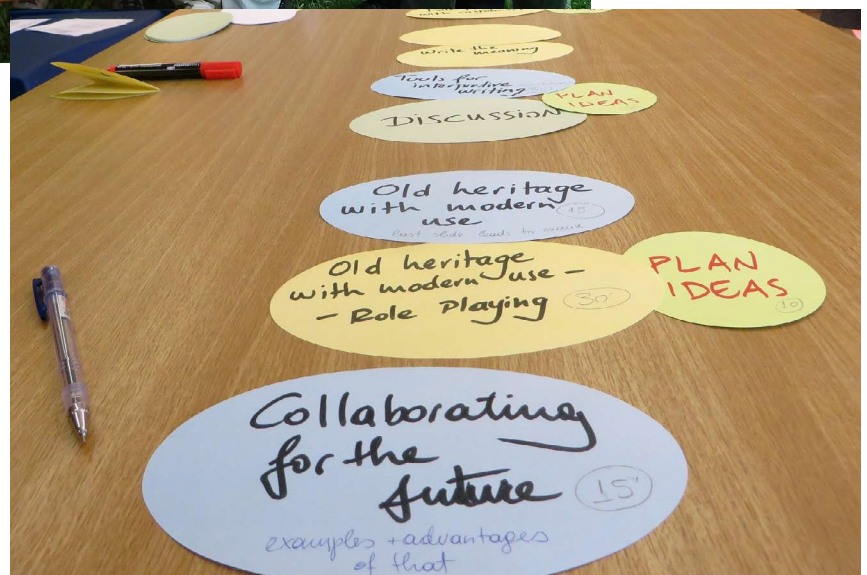 Write the meaning
Tools for
interpretive
writing
PLAN
IDEAS
DISCUSSION
Old heritage
with modern
use
15'
last slide leads to
Old heritage
with modern use -
- Role Playing
30'
PLAN
IDEAS
10
Collaborating
for the
future
15'
examples + advantages
of that